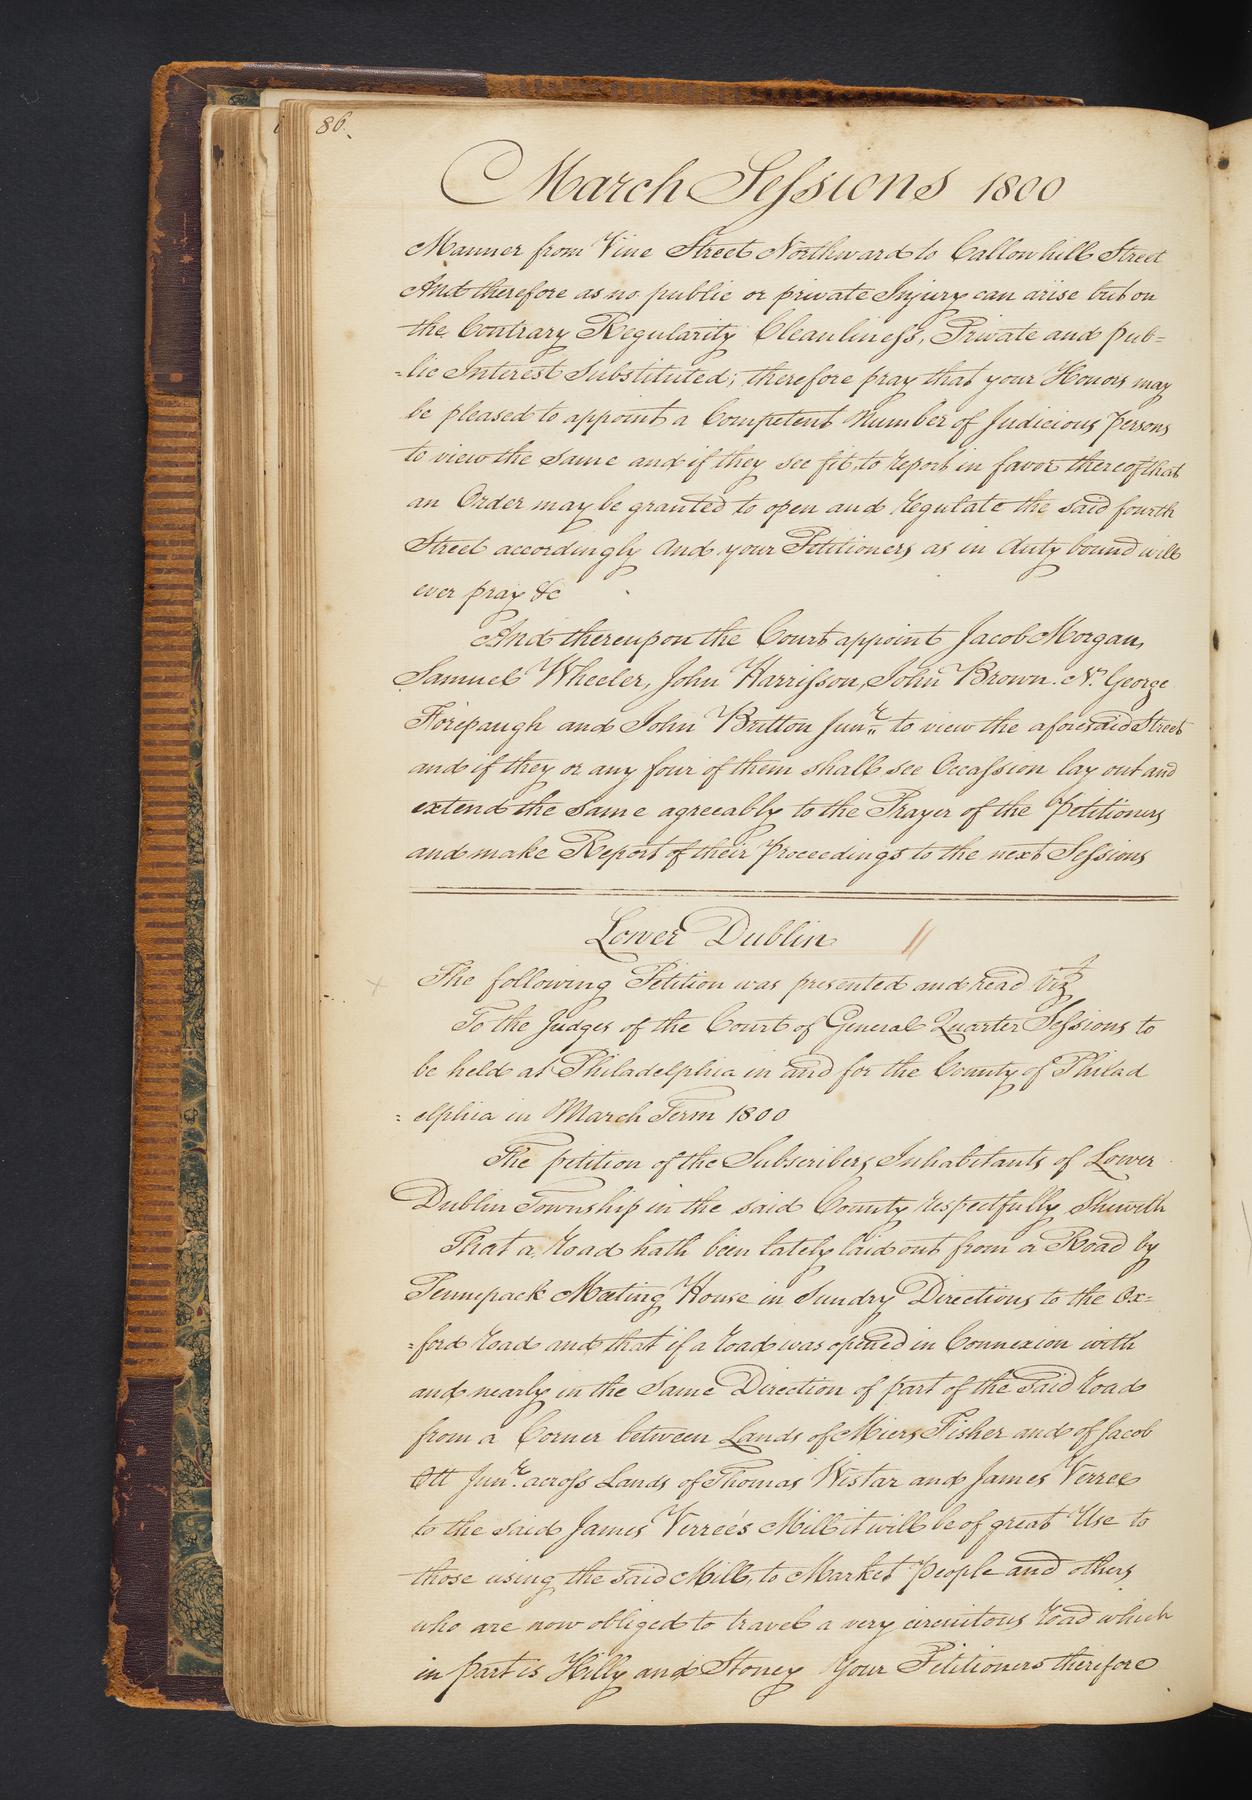 86.
March Sessions 1800
Manner from Vine Street Northward to Callowhill Street
And therefore as no public or private Injury can arise but on
the Contrary Regularity Cleanliness, Private and pub=
-lic Interest Substituted; therefore pray that your Honors may
be pleased to appoint a Competent Number of Judicious Persons
to view the Same and if they see fit, to report in favor thereof that
an Order may be granted to open and regulate the said fourth
Street accordingly And your Petitioners as in duty bound will
ever pray &c
And thereupon the Court appoint Jacob Morgan,
Samuel Wheeler, John Harrisson, John Brown. N. George
Forepaugh and John Britton Junr. to view the aforesaid Street
and if they or any four of them shall see Occassion lay out and
extend the Same agreeably to the Prayer of the Petitioners
and make Report of their Proceedings to the next Sessions
Lower Dublin //
The following Petition was presented and read Viz
To the Judges of the Court of General Quarter Sessions to
be held at Philadelphia in and for the County of Philad
=elphia in March Term 1800
The petition of the Subscribers Inhabitants of Lower
Dublin Township in the said County respectfully Sheweth
That a road hath been lately laid out from a Road by
Pennepack Meeting House in Sundry Directions to the Ox=
=ford road and that if a road was opened in Connexion with
and nearly in the Same Direction of part of the said road
from a Corner between Lands of Miers Fisher and of Jacob
Ott Junr. across Lands of Thomas Wistar and James Verree
to the said James Verree's Mill it will be of great Use to
those using the said Mill, to Market People and others
who are now obliged to travel a very circuitous road which
in part is Hilly and Stoney Your Petitioners therefore